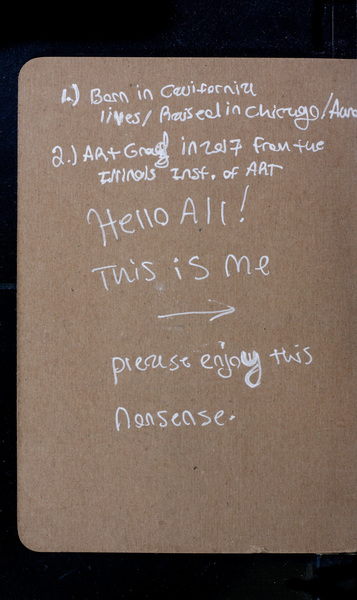 1.) Born in California
lives/Raised in Chicago/Auro
2.) Art Grad in 2017 from the
Illinois Inst. of ART
Hello All!
This is me
→
please enjoy this
nonsense.